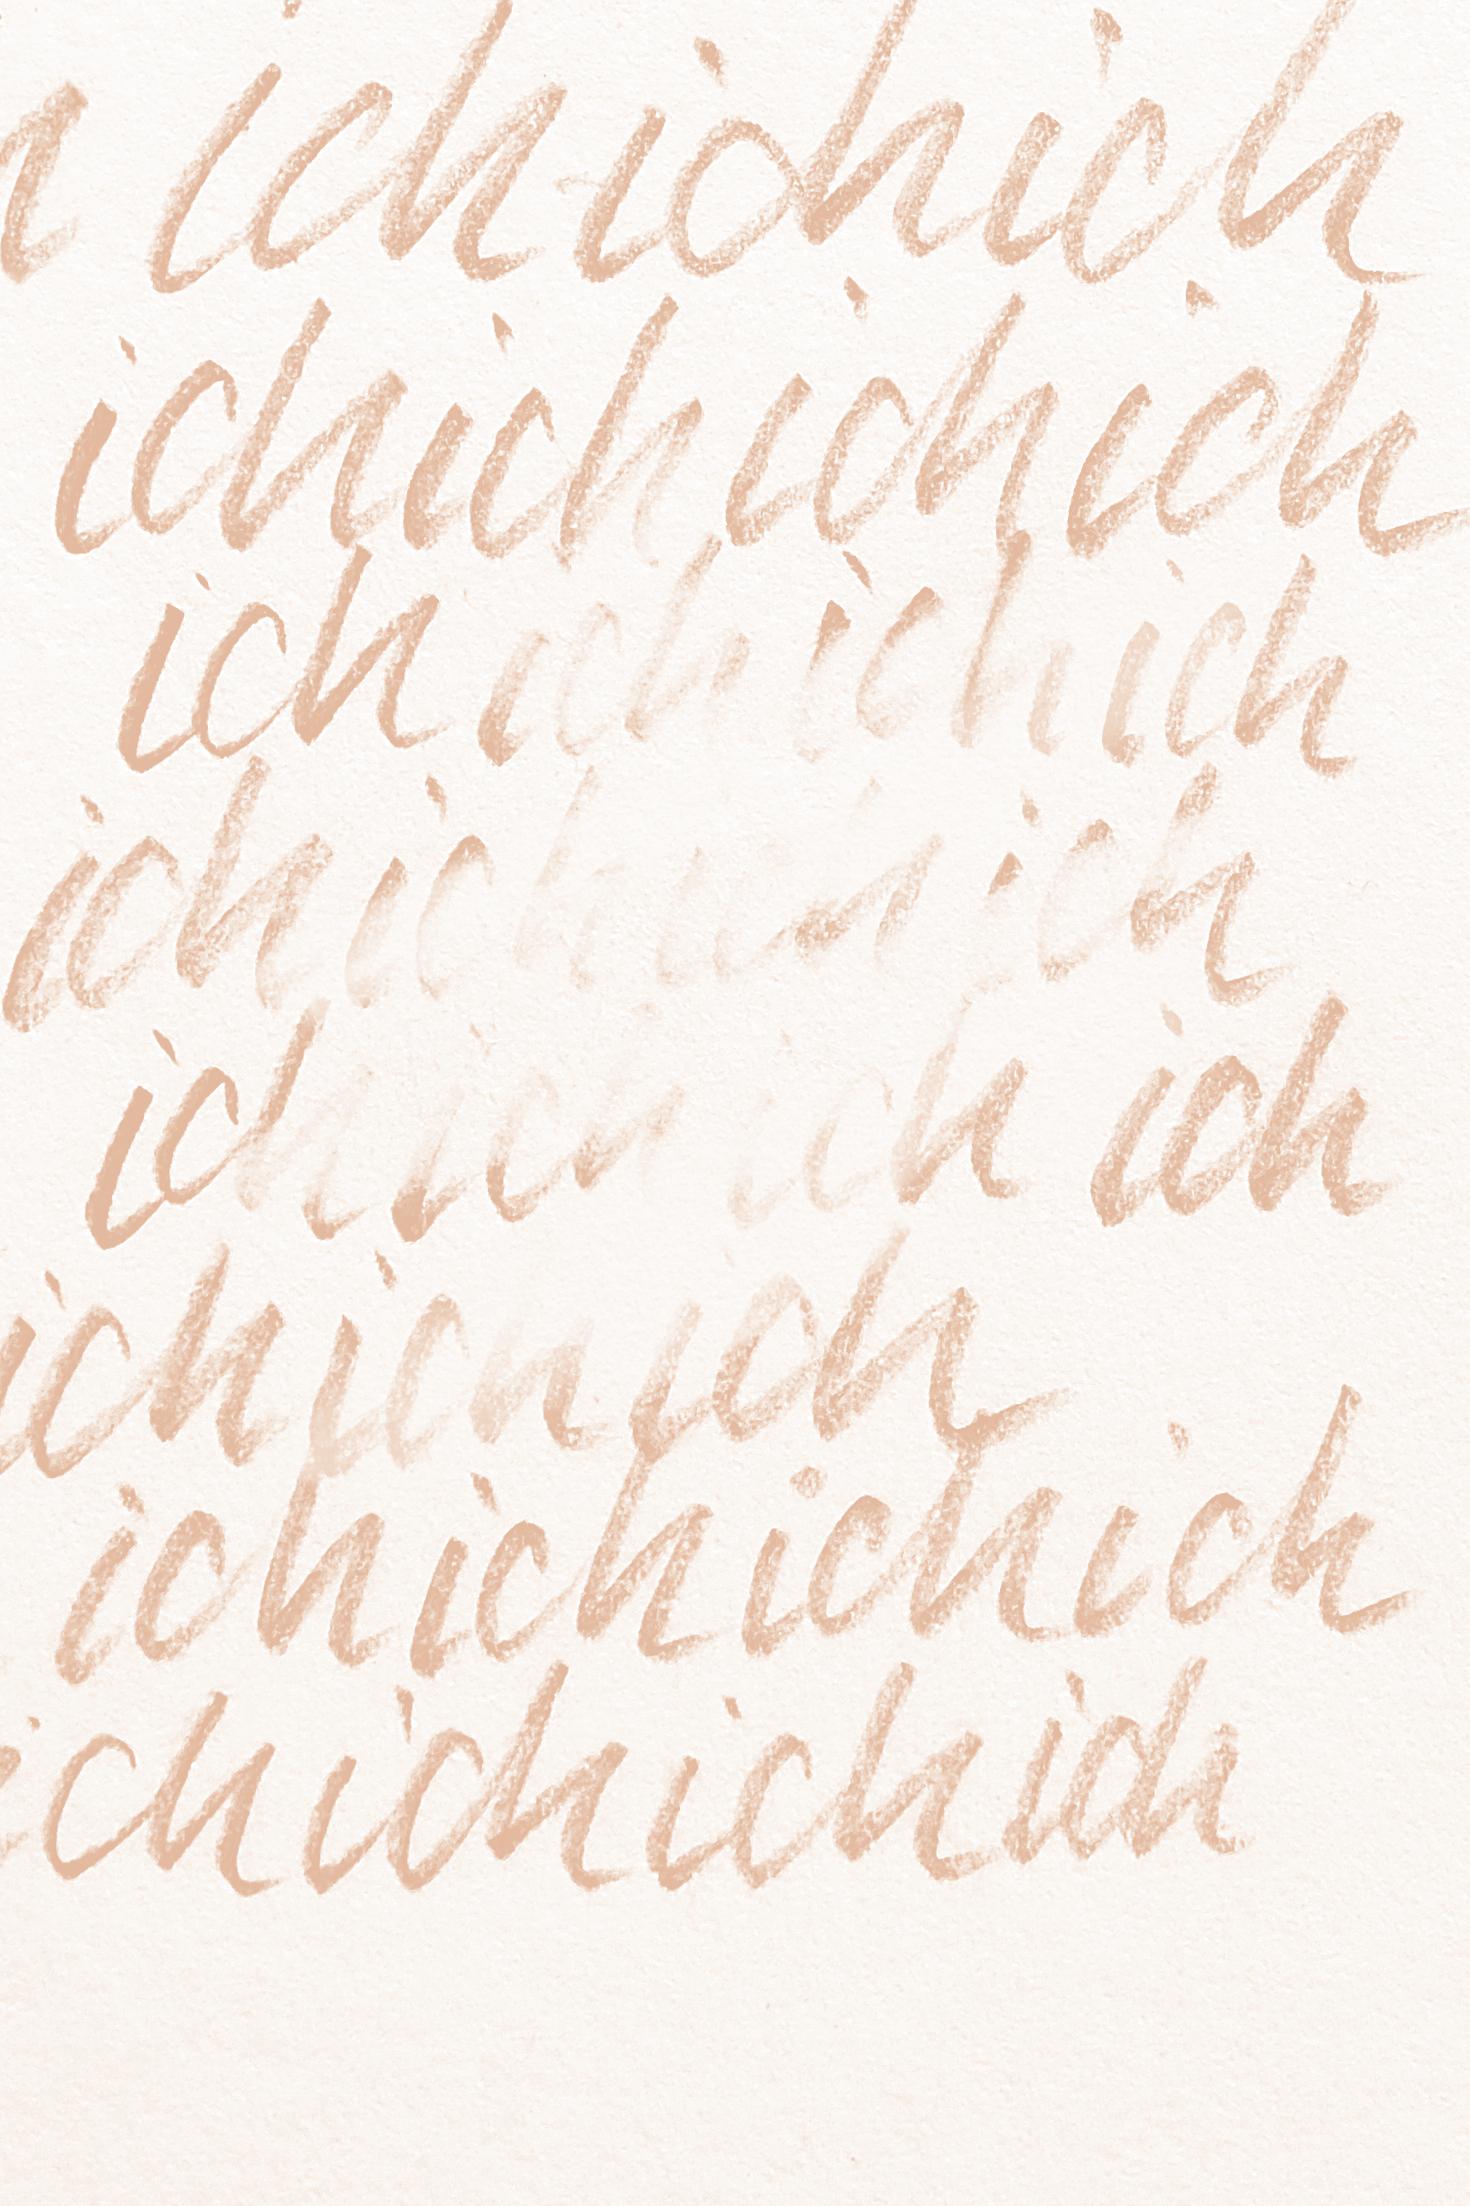 ich ich ich
ich ich ich ich
ich ich ich ich
ich ich ich
ich ich ich
ich ich ich
ich ich ich ich
ich ich ich ich